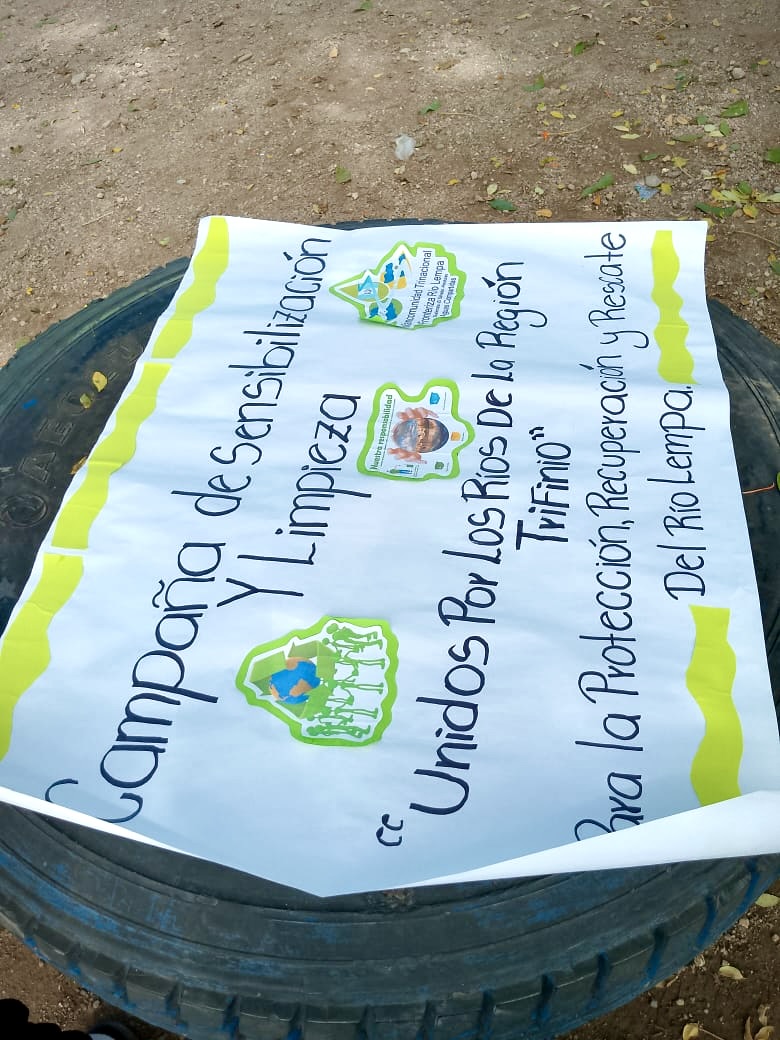 Campaña de Sensibilización
Y Limpieza
Mancomunidad Trinacional
Fronteriza Río Lempa
Aguas Compartidas
Nuestra responsabilidad
"Unidos Por Los Ríos De La Región
Trifinio"
Para la Protección, Recuperación y Rescate
Del Río Lempa.